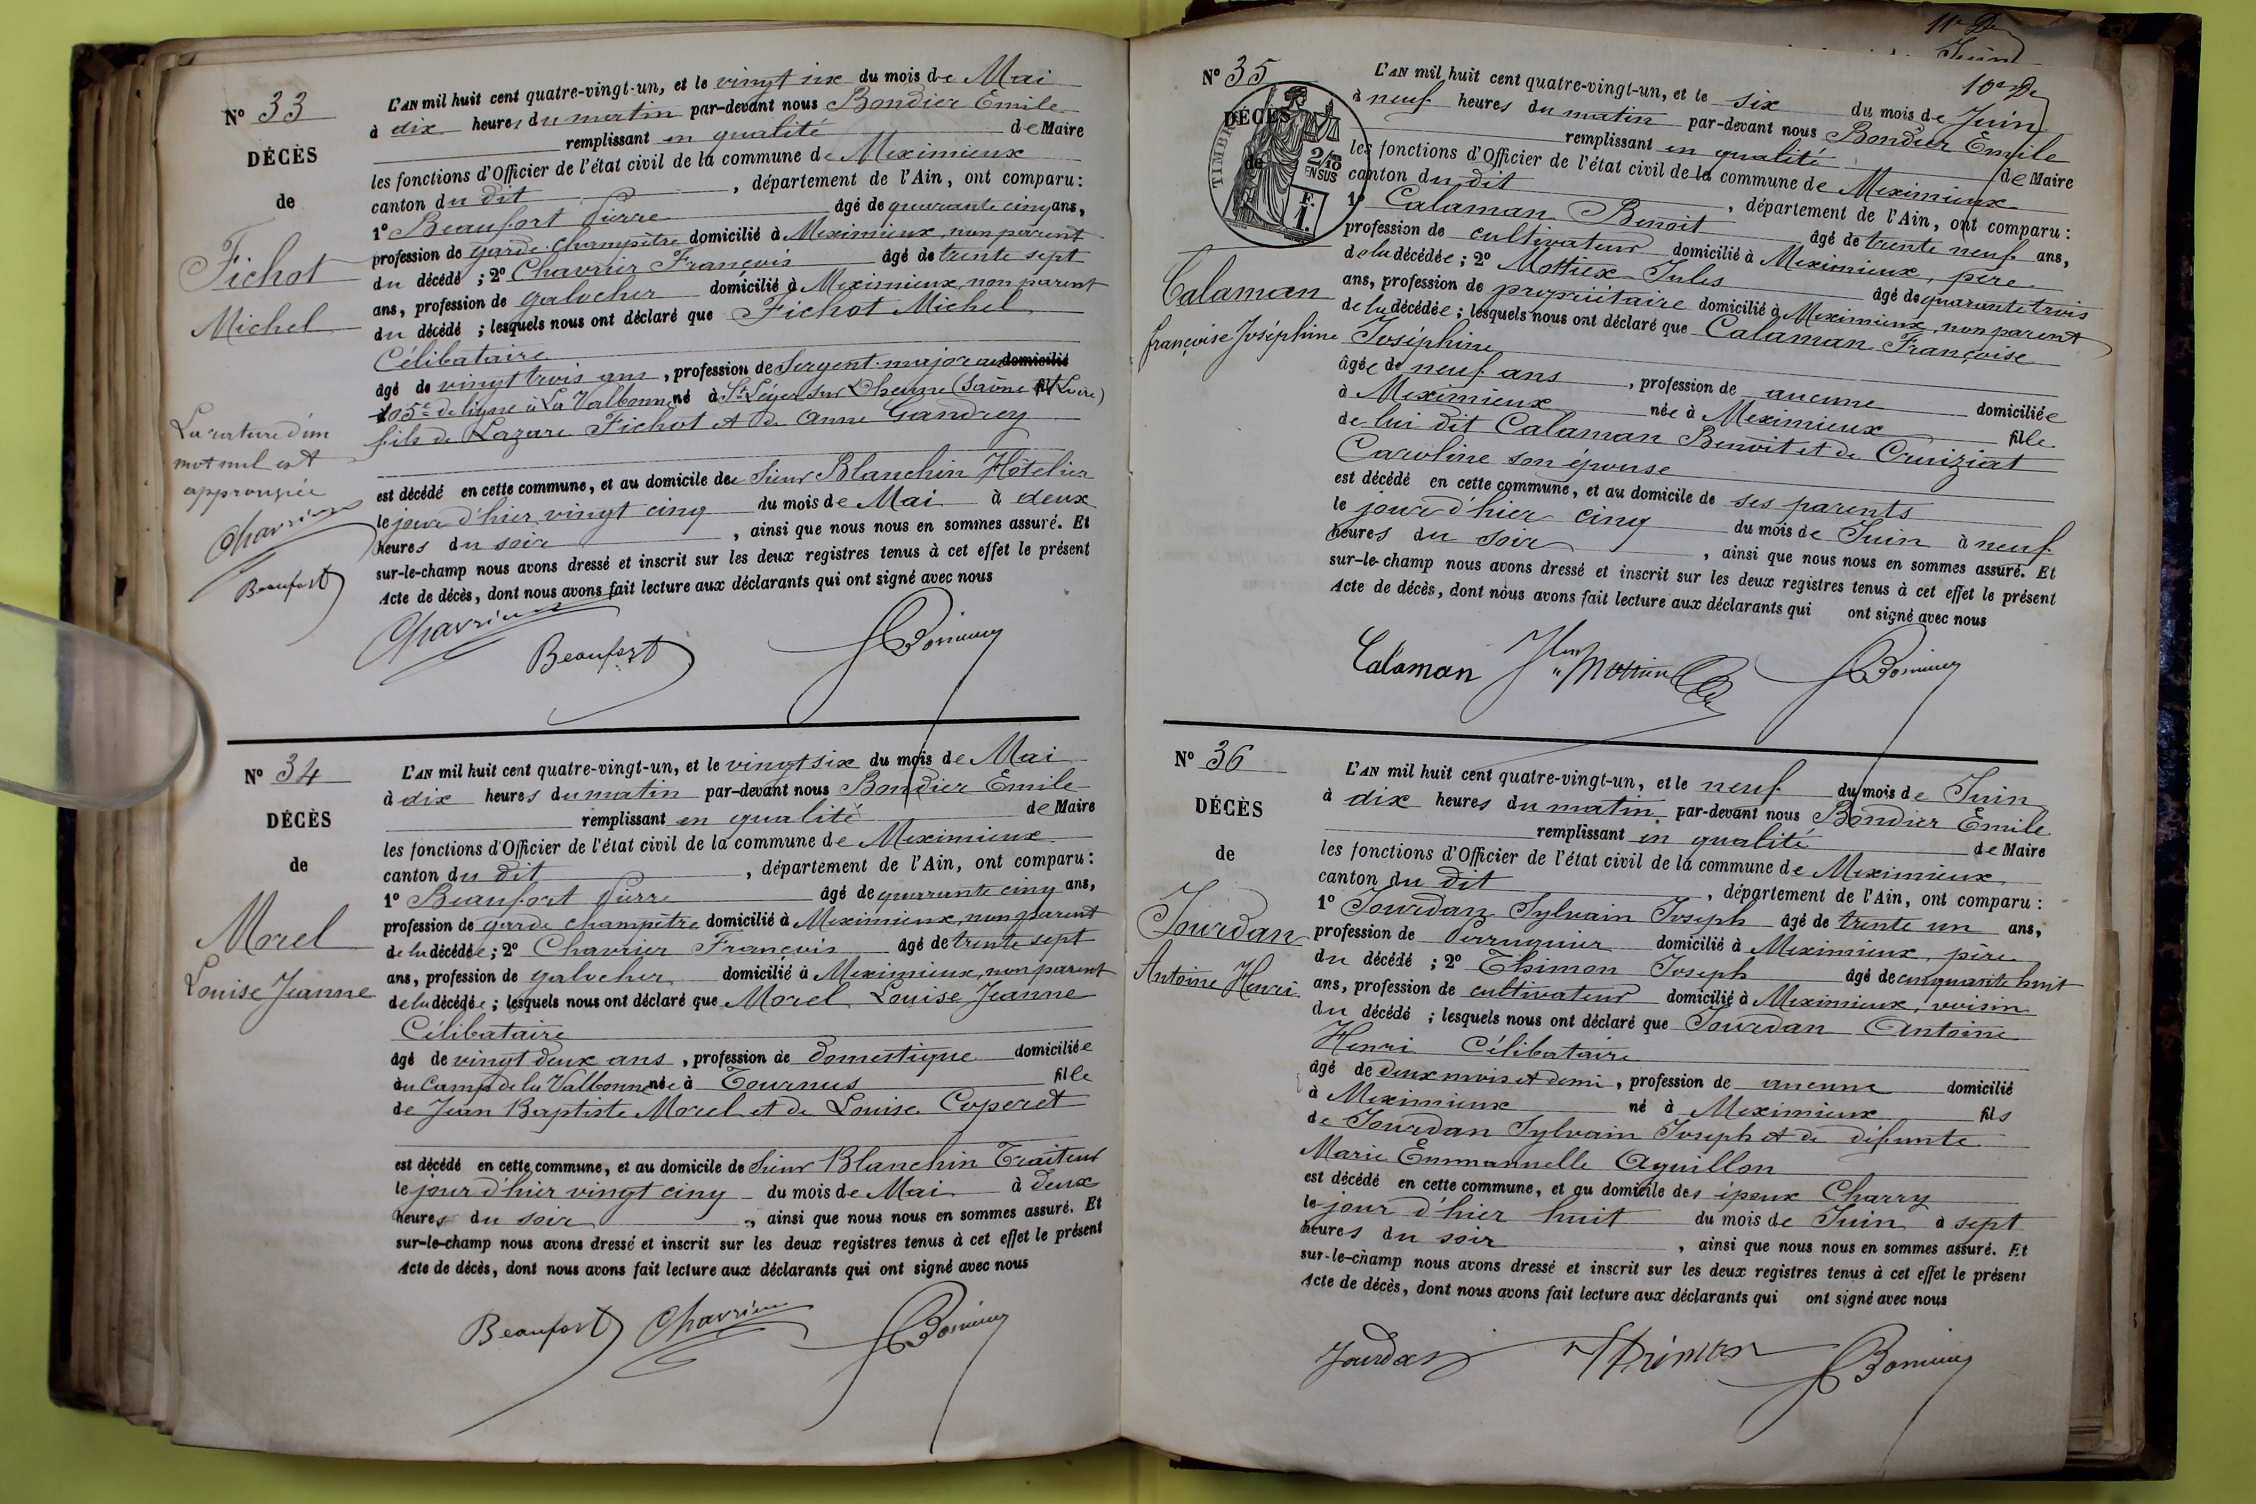 N° 33
DÉCÈS
de
Fichot
Michel
La rature d'un
mot nul est
approuvée
Chavrier
Beaufort
L'AN mil huit cent quatre-vingt-un, et le vingt six du mois de Mai
à dix heures du matin par-devant nous Bondier Emile
remplissant en qualité de Maire
les fonctions d'Officier de l'état civil de la commune de Meximieux
canton du dit, département de l'Ain, ont comparu:
1° Beaufort Pierre âgé de quarante cinq ans,
profession de garde champêtre domicilié à Meximieux, non parent
du décédé ; 2° Chavrier François âgé de trente sept
ans, profession de galocher domicilié à Meximieux, non parent
du décédé ; lesquels nous ont déclaré que Fichot Michel
Célibataire
âgé de vingt trois ans, profession de Sergent-major au domicilié
105e de ligne à La Valbonne né à St Léger sur Dheune (Saône et Loire)
fils de Lazare Fichot et de Anne Gandrey
est décédé en cette commune, et au domicile de Sieur Blanchin Hôtelier
le jour d'hier vingt cinq du mois de Mai à deux
heures du soir, ainsi que nous nous en sommes assuré. Et
sur-le-champ nous avons dressé et inscrit sur les deux registres tenus à cet effet le présent
Acte de décès, dont nous avons fait lecture aux déclarants qui ont signé avec nous
Chavrier Beaufort
N° 34
DÉCÈS
de
Morel
Louise Jeanne
L'AN mil huit cent quatre-vingt-un, et le vingt six du mois de Mai
à dix heures du matin par-devant nous Bondier Emile
remplissant en qualité de Maire
les fonctions d'Officier de l'état civil de la commune de Meximieux
canton du dit, département de l'Ain, ont comparu:
1° Beaufort Pierre âgé de quarante cinq ans,
profession de garde champêtre domicilié à Meximieux, non parent
de la décédée ; 2° Chavrier François âgé de trente sept
ans, profession de galocher domicilié à Meximieux, non parent
de la décédée ; lesquels nous ont déclaré que Morel Louise Jeanne
Célibataire
âgé de vingt deux ans, profession de domestique domiciliée
au Camp de la Valbonne née à Tournus fille
de Jean Baptiste Morel et de Louise Coperet
est décédé en cette commune, et au domicile de Sieur Blanchin Traiteur
le jour d'hier vingt cinq du mois de Mai à deux
heures du soir, ainsi que nous nous en sommes assuré. Et
sur-le-champ nous avons dressé et inscrit sur les deux registres tenus à cet effet le présent
Acte de décès, dont nous avons fait lecture aux déclarants qui ont signé avec nous
Beaufort Chavrier
Juin
N° 35
DÉCÈS
de
TIMBRE
2/10 EN SUS
F. 1.
Calaman
françoise Joséphine
L'AN mil huit cent quatre-vingt-un, et le six du mois de Juin
à neuf heures du matin par-devant nous Bondier Emile
remplissant en qualité de Maire
les fonctions d'Officier de l'état civil de la commune de Meximieux
canton du dit, département de l'Ain, ont comparu:
1° Calaman Benoit âgé de trente neuf ans,
profession de cultivateur domicilié à Meximieux, père
de la décédée ; 2° Mottiex Jules âgé de quarante trois
ans, profession de propriétaire domicilié à Meximieux, non parent
de la décédée ; lesquels nous ont déclaré que Calaman Françoise
Joséphine
âgée de neuf ans, profession de aucune domiciliée
à Meximieux née à Meximieux fille
de lui dit Calaman Benoit et de Cruiziat
Caroline son épouse
est décédé en cette commune, et au domicile de ses parents
le jour d'hier cinq du mois de Juin à neuf
heures du soir, ainsi que nous nous en sommes assuré. Et
sur-le-champ nous avons dressé et inscrit sur les deux registres tenus à cet effet le présent
Acte de décès, dont nous avons fait lecture aux déclarants qui ont signé avec nous
Calaman
N° 36
DÉCÈS
de
Jourdan
Antoine Henri
L'AN mil huit cent quatre-vingt-un, et le neuf du mois de Juin
à dix heures du matin par-devant nous Bondier Emile
remplissant en qualité de Maire
les fonctions d'Officier de l'état civil de la commune de Meximieux
canton du dit, département de l'Ain, ont comparu:
1° Jourdan Sylvain Joseph âgé de trente un ans,
profession de Perruquier domicilié à Meximieux, père
du décédé ; 2° Thimon Joseph âgé de cinquante huit
ans, profession de cultivateur domicilié à Meximieux, voisin
du décédé ; lesquels nous ont déclaré que Jourdan Antoine
Henri Célibataire
âgé de deux mois et demi, profession de aucune domicilié
à Meximieux né à Meximieux fils
de Jourdan Sylvain Joseph et de défunte
Marie Emmanuelle Aguillon
est décédé en cette commune, et au domicile des époux Charry
le jour d'hier huit du mois de Juin à sept
heures du soir, ainsi que nous nous en sommes assuré. Et
sur-le-champ nous avons dressé et inscrit sur les deux registres tenus à cet effet le présent
Acte de décès, dont nous avons fait lecture aux déclarants qui ont signé avec nous
Jourdan Thimon